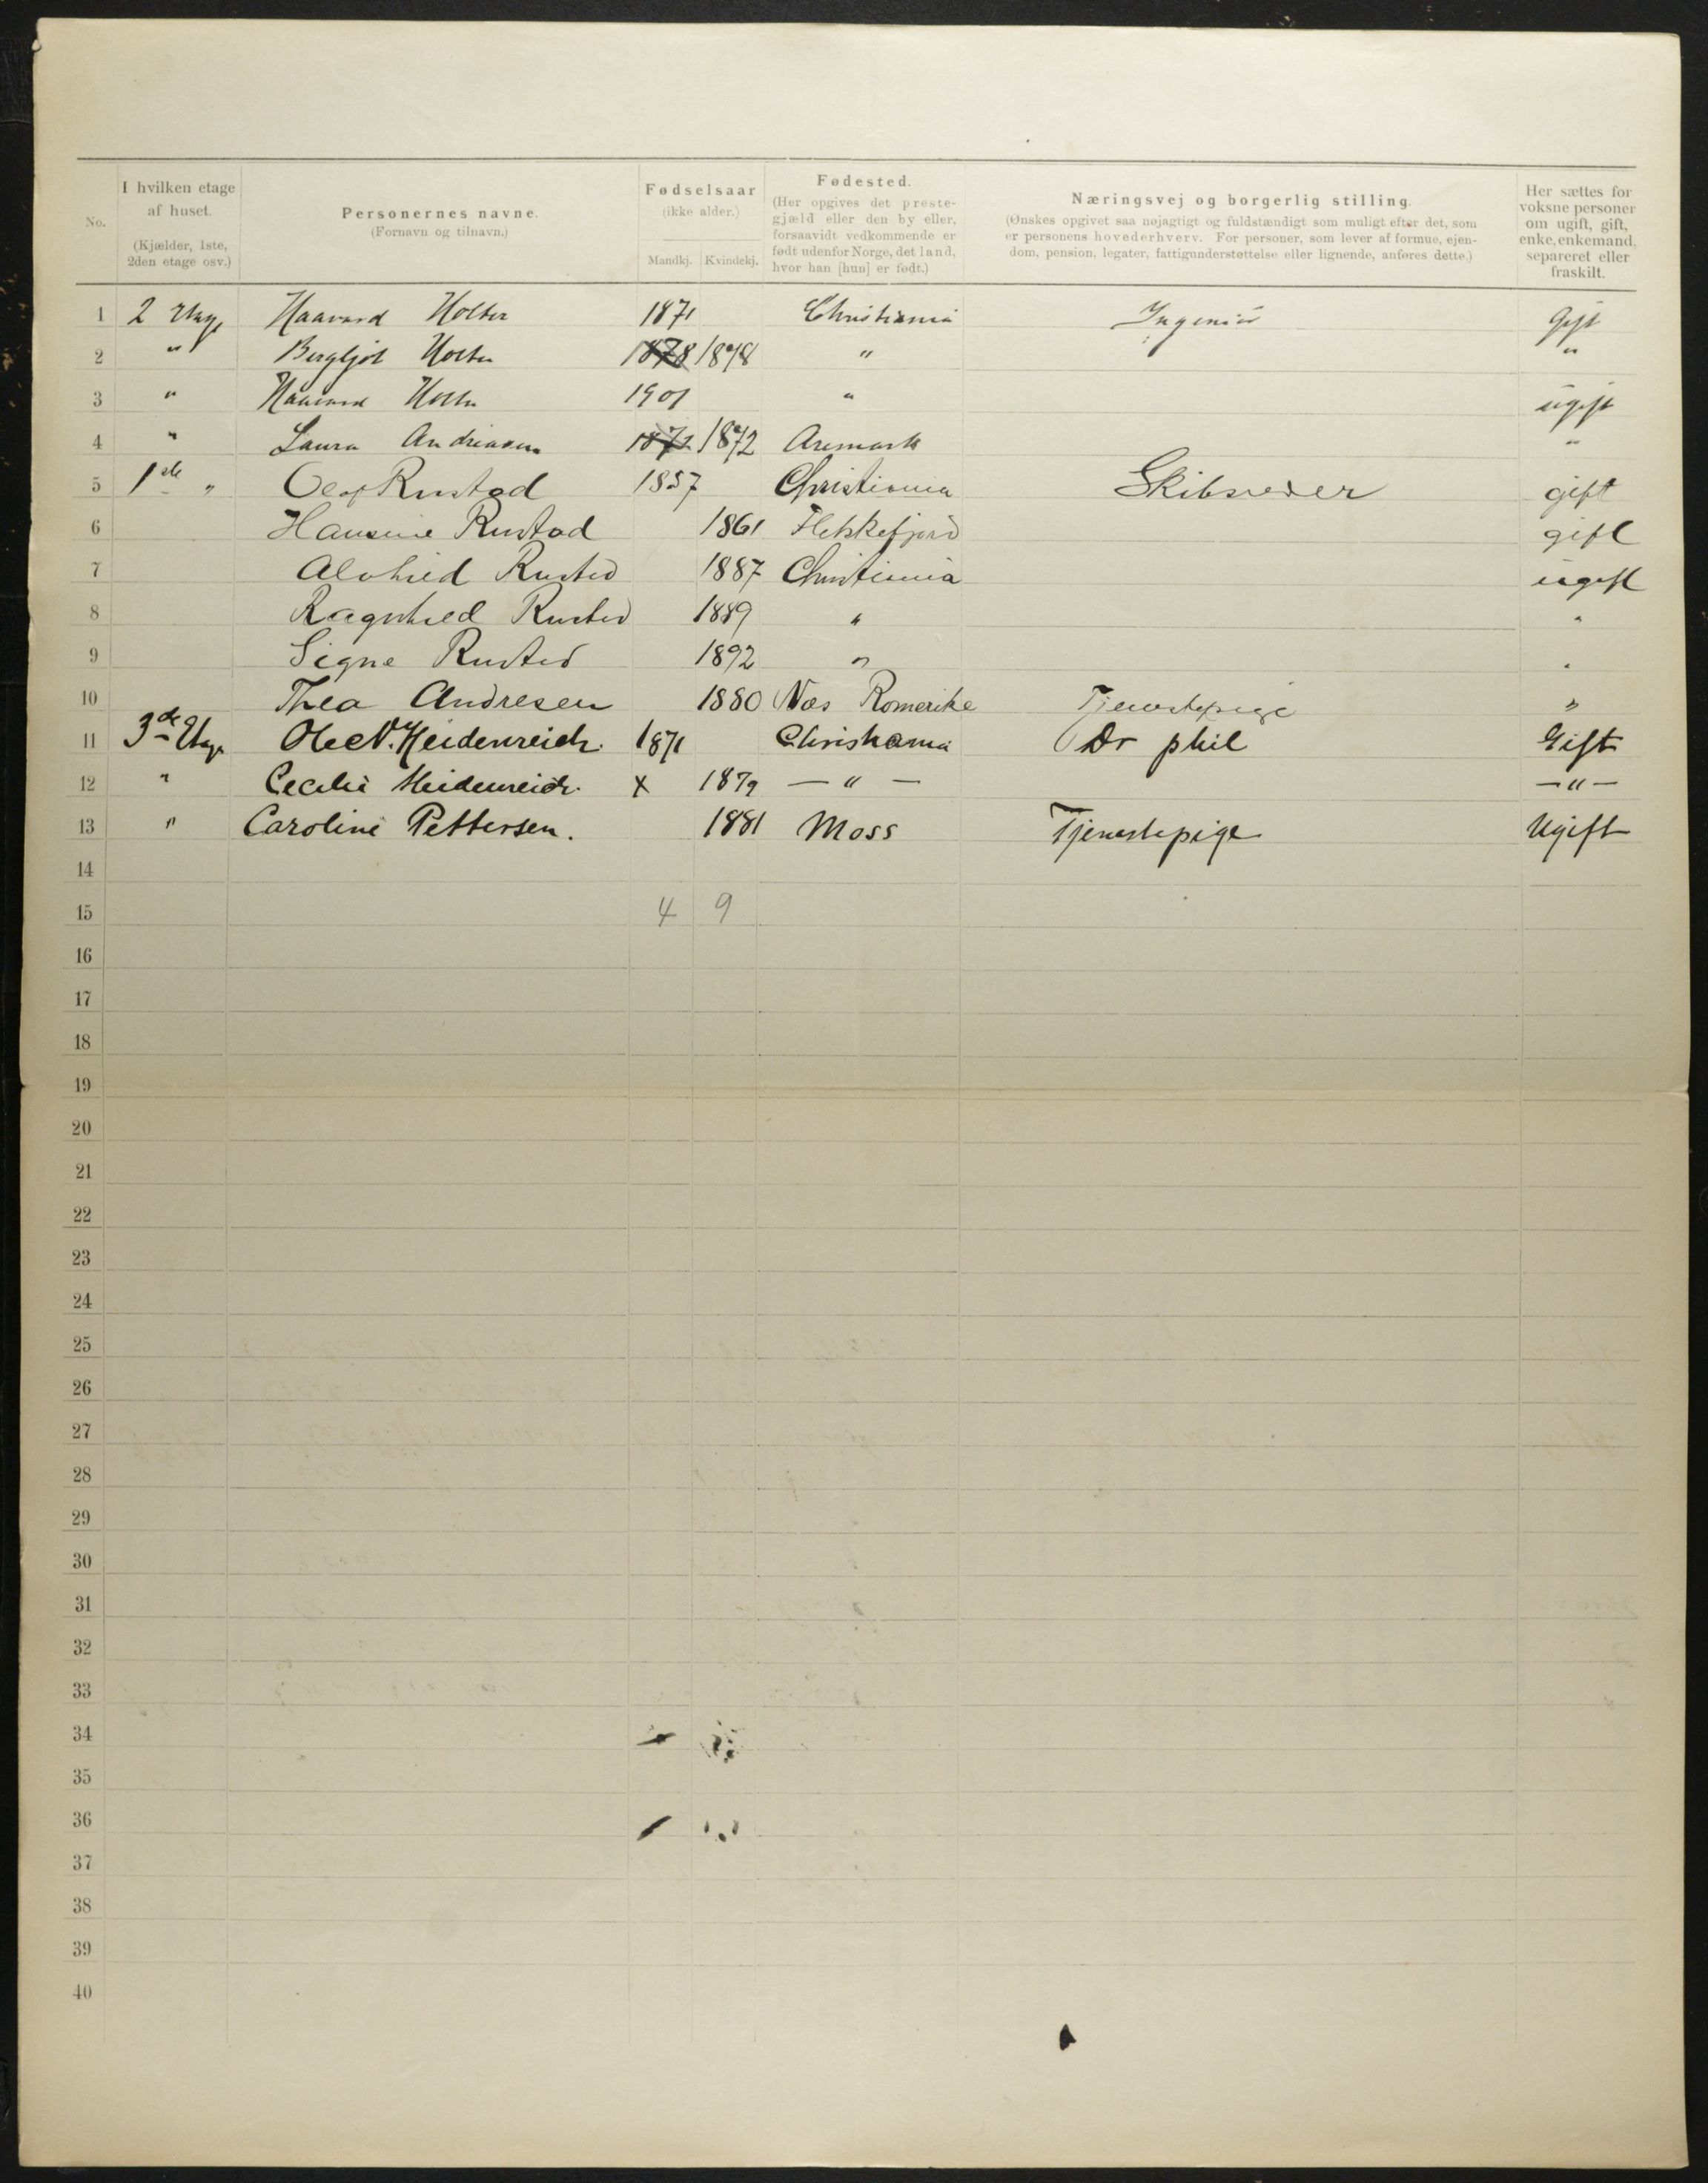 No. I hvilken etage af huset. (Kjælder, 1ste, 2den etage osv.) Personernes navne. (Fornavn og tilnavn.) Fødselsaar (ikke alder.) Mandkj. Kvindekj. Fødested. (Her opgives det prestegjæld eller den by eller, forsaavidt vedkommende er født udenfor Norge, det land, hvor han [hun] er født.) Næringsvej og borgerlig stilling. (Ønskes opgivet saa nøjagtigt og fuldstændigt som muligt efter det, som er personens hovederhverv. For personer, som lever af formue, ejendom, pension, legater, fattigunderstøttelse eller lignende, anføres dette.) Her sættes for voksne personer om ugift, gift, enke, enkemand, separeret eller fraskilt.
1 2 Etage Haavard Holter 1871 Christiania Ingeniør Gift
2 " Bergljot Holter 1878 1878 " "
3 " Haavard Holter 1901 " ugift
4 " Laura Andreasen 1872 1872 Aremark "
5 1ste " Olaf Rustad 1857 Christiania Skibsreder gift
6 Hansine Rustad 1861 Flekkefjord gift
7 Alvhild Rustad 1887 Christiania ugift
8 Ragnhild Rustad 1889 " "
9 Signe Rustad 1892 " "
10 Thea Andresen 1880 Næs Romerike Tjenestepige "
11 3de Etage Ole N. Heidenreich. 1871 Christiania Dr phil Gift
12 " Cecilie Heidenreich. x 1879 — " — — " —
13 " Caroline Pettersen. 1881 Moss Tjenestepige Ugift
14
15 4 9
16
17
18
19
20
21
22
23
24
25
26
27
28
29
30
31
32
33
34
35
36
37
38
39
40